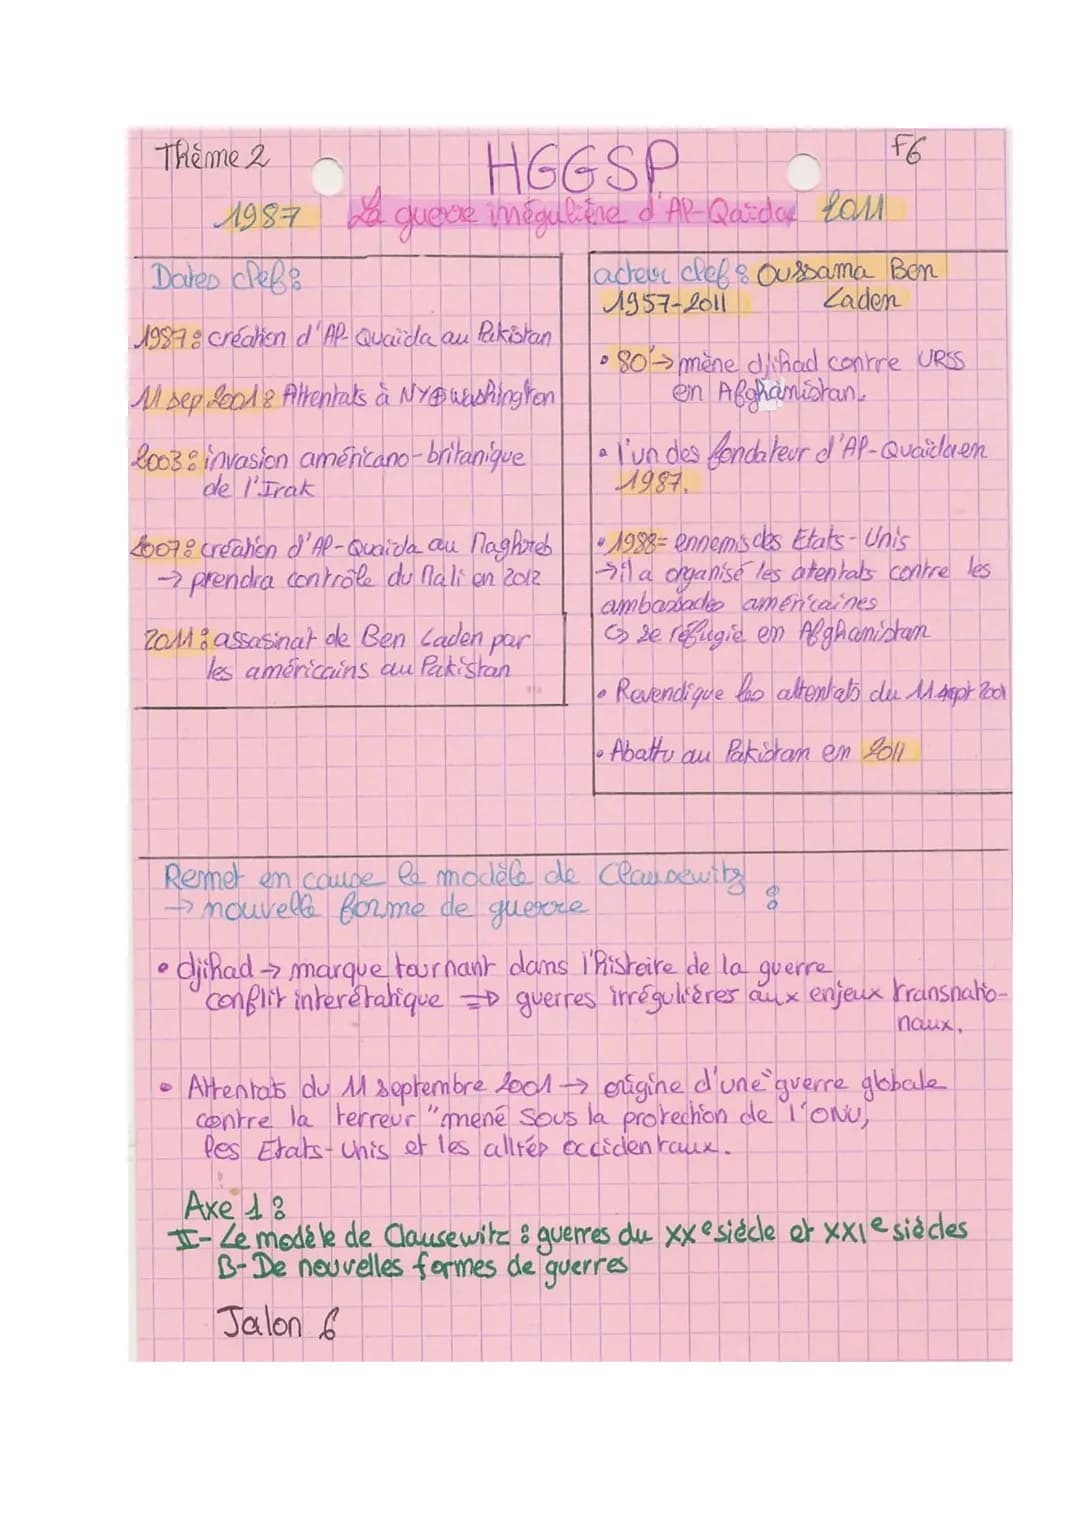 Thème 2
HGGSP
F6
1987 La guerre irrégulière d'Al-Qaïda 2011
Dates clefs :
1987 : création d'Al-Quaïda au Pakistan
11 sep 2001 : Attentats à NY⊕washington
2003 : invasion américano-britanique
de l'Irak
2007 : création d'Al-Quaida au Maghreb
→ prendra contrôle du Mali en 2012
2011 : assasinat de Ben Laden par
les américains au Pakistan
acteur clef : Oussama Ben
1957-2011 Laden
• 80' → mène djihad contre URSS
en Afghanistan.
• l'un des fondateur d'Al-Quaïda en
1987.
• 1988 = ennemis des Etats-Unis
→ il a organisé les atentats contre les
ambassades américaines
↳ se réfugie en Afghanistan
• Revendique les attentats du 11 sept 2001
• Abattu au Pakistan en 2011
Remet en cause le modèle de Clausewitz
→ nouvelle forme de guerre :
• djihad → marque tournant dans l'histoire de la guerre
conflit interétatique ⇒ guerres irrégulières aux enjeux transnatio-
naux.
• Attentats du 11 septembre 2001 → origine d'une "guerre globale
contre la terreur" mené sous la protection de l'ONU,
les Etats-Unis et les alliés occidentaux.
Axe 1 :
II- Le modèle de Clausewitz : guerres du XXe siécle et XXIe siècles
B- De nouvelles formes de guerres
Jalon 6